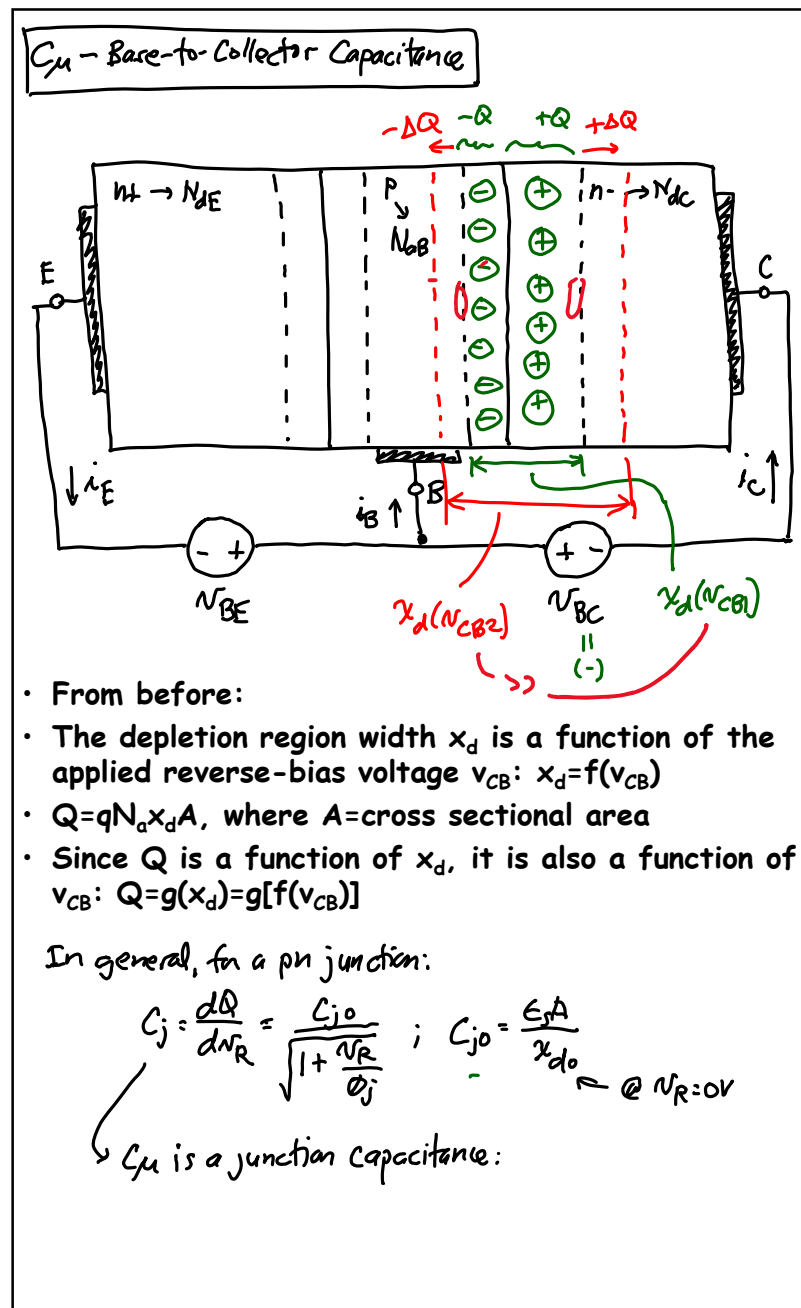 Cμ - Base-to-Collector Capacitance
-ΔQ -Q +Q +ΔQ
n+ → NdE p NaB n- → NdC
E C
iE iB B iC
- + + -
vBE vBC
xd(vCB2) xd(vCB1)
=
(-)
>>
• From before:
• The depletion region width xd is a function of the
applied reverse-bias voltage vCB: xd=f(vCB)
• Q=qNaxdA, where A=cross sectional area
• Since Q is a function of xd, it is also a function of
vCB: Q=g(xd)=g[f(vCB)]
In general, for a pn junction:
Cj = dQ/dvR = Cjo/√(1 + vR/φj) ; Cjo = εsA/xdo
@ vR=0V
Cμ is a junction capacitance: